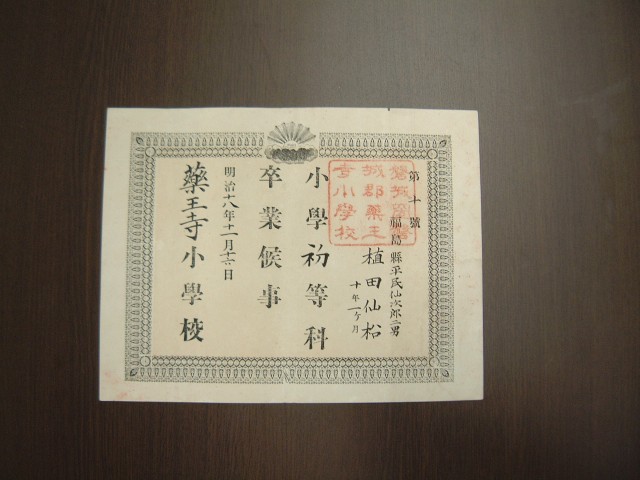 第十號
福島縣平民仙次郎二男
植田仙松
十年一ヶ月
小學初等科
卒業候事
明治十八年十二月十六日
藥王寺小學校
城郡藥王
寺小學校